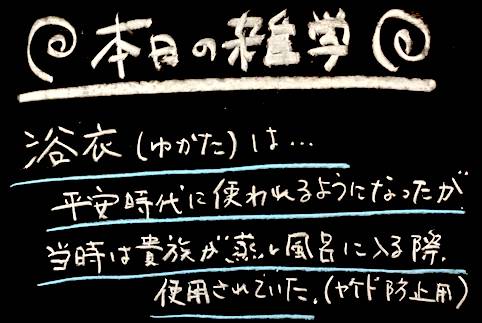 本日の雑学
浴衣(ゆかた)は…
平安時代に使われるようになったが
当時は貴族が蒸し風呂に入る際、
使用されていた。(ヤケド防止用)